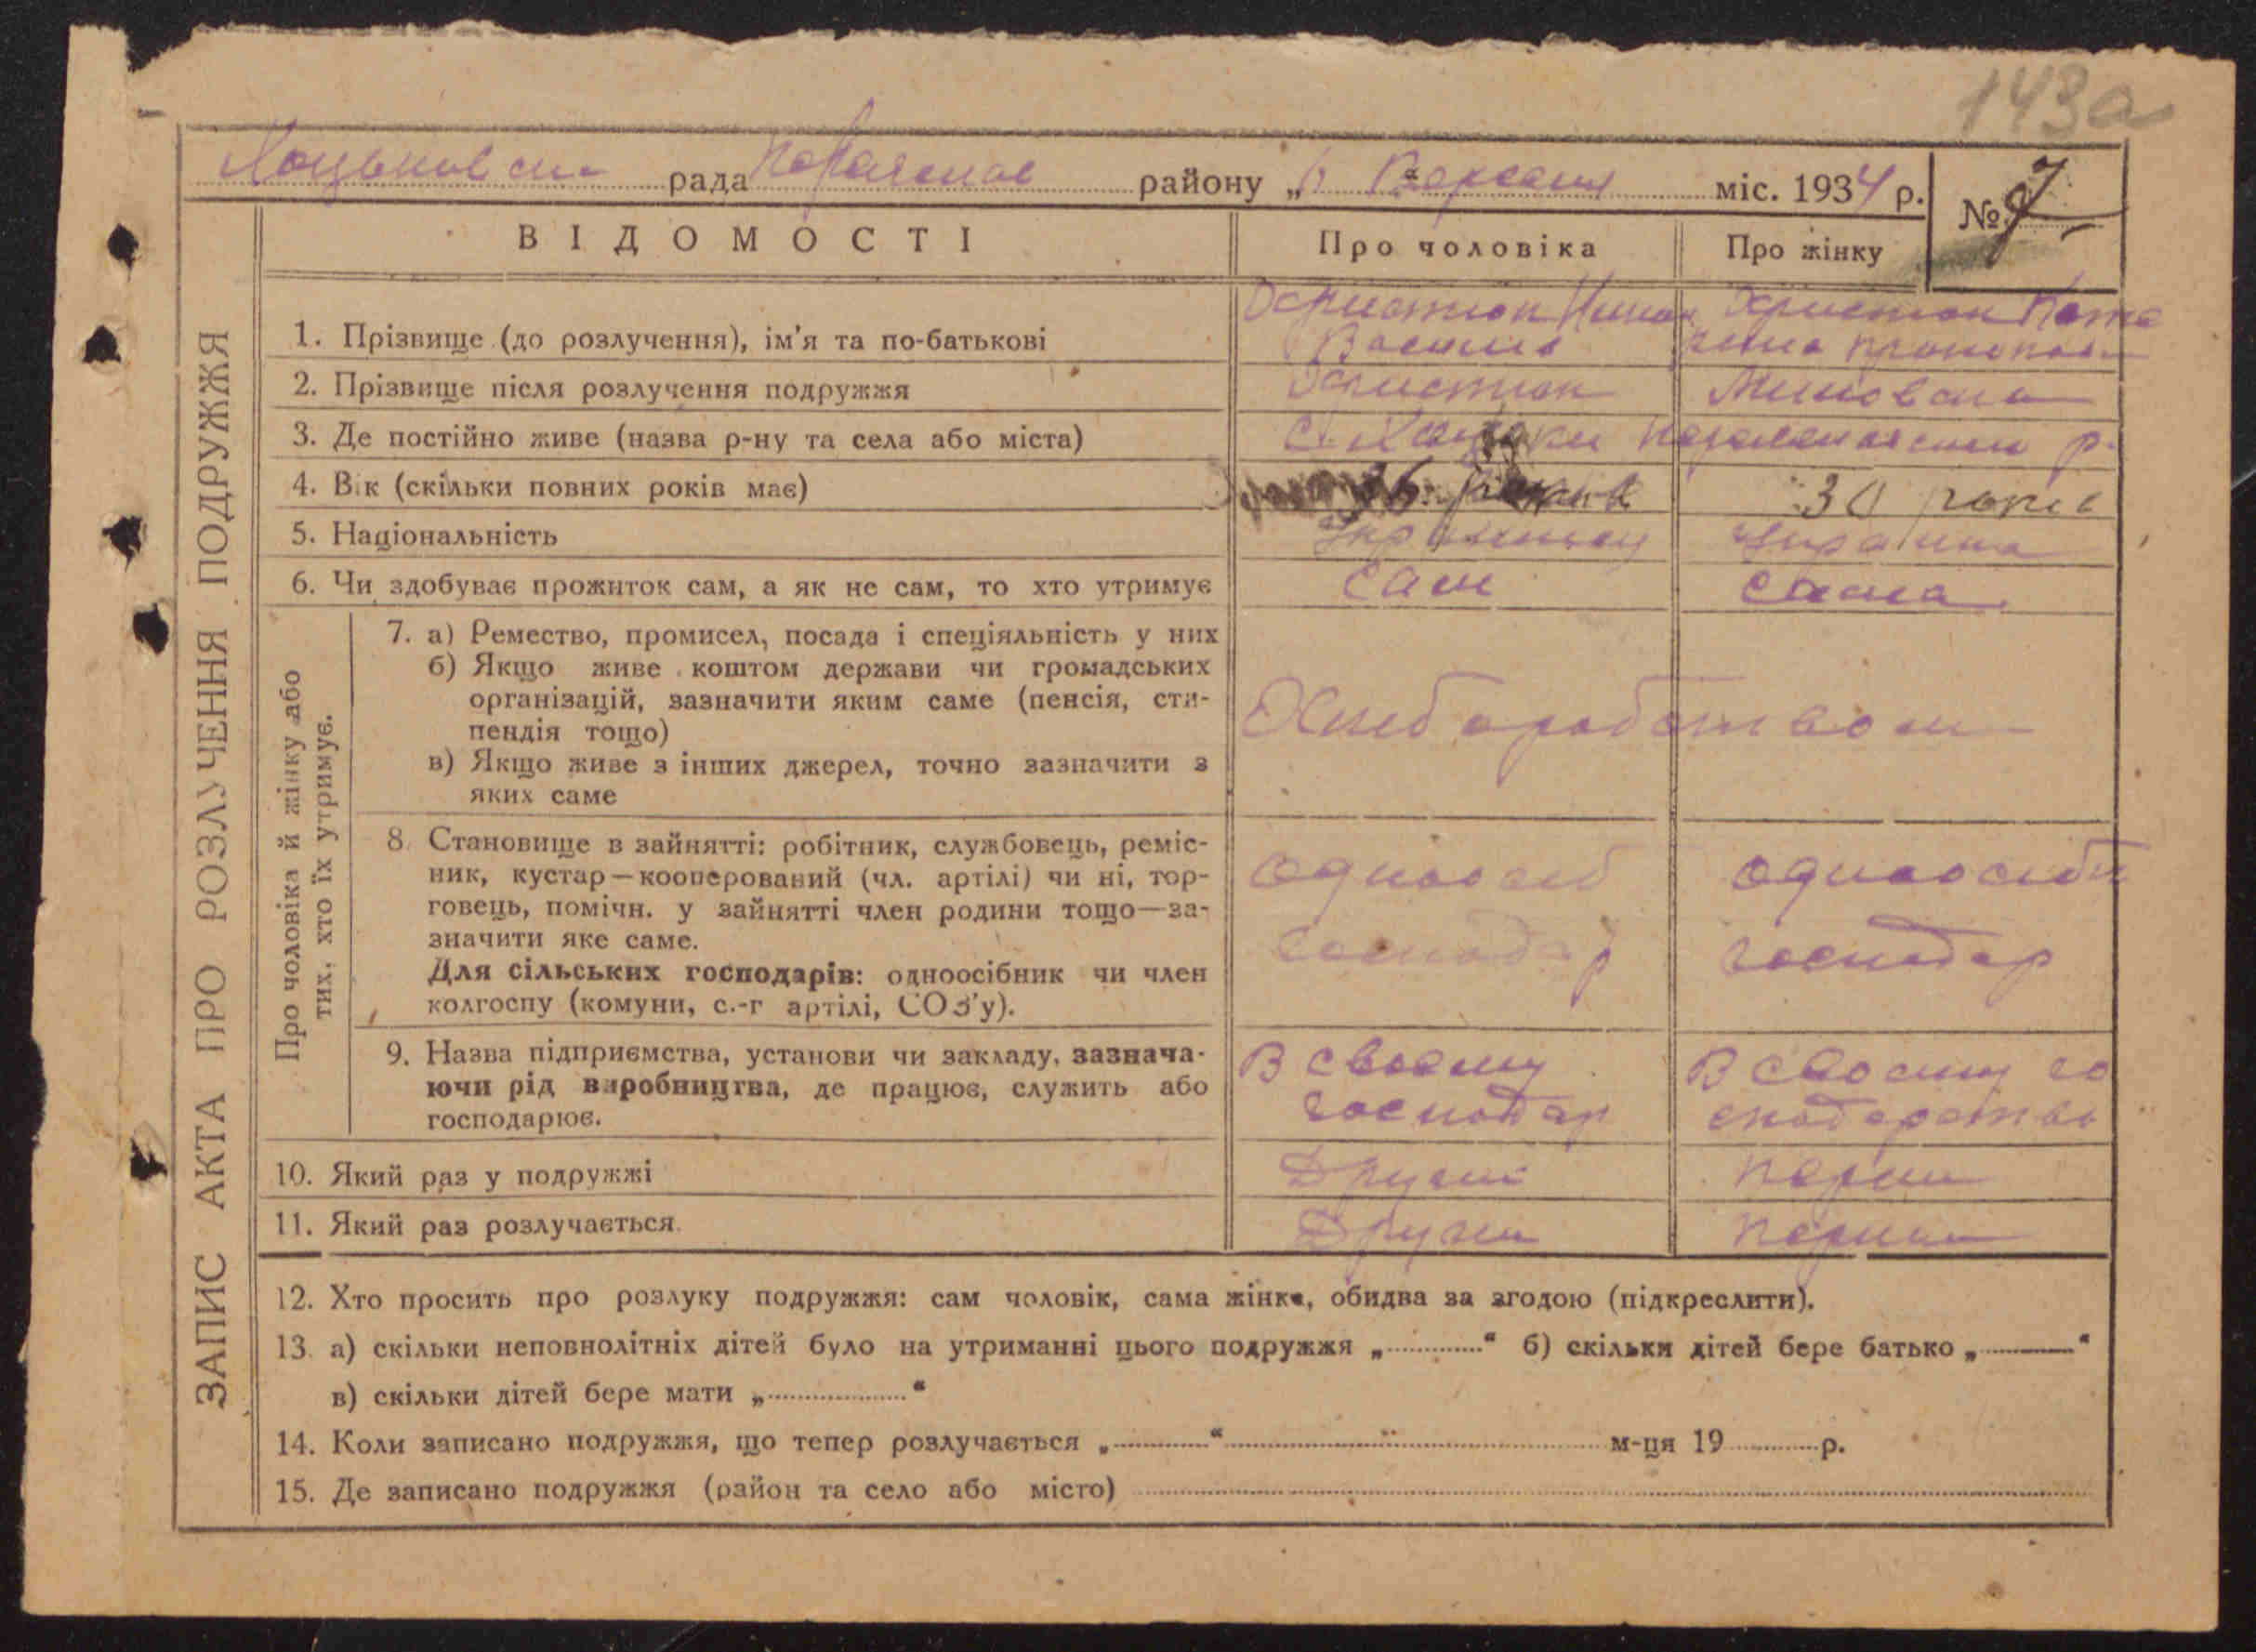 143а
рада району „6 Вересня міс. 1934 р.
№ 7
ВІДОМОСТІ
Про чоловіка
Про жінку
ЗАПИС АКТА ПРО РОЗЛУЧЕННЯ ПОДРУЖЖЯ
1. Прізвище (до розлучення), ім'я та по-батькові
2. Прізвище після розлучення подружжя
3. Де постійно живе (назва р-ну та села або міста)
с. Хоцьки р.
4. Вік (скільки повних років має)
36 років
30 років
5. Національність
Українец
Українка
6. Чи здобуває прожиток сам, а як не сам, то хто утримує
сам
сама
Про чоловіка й жінку або
тих, хто їх утримує.
7. а) Ремество, промисел, посада і спеціяльність у них
б) Якщо живе коштом держави чи громадських
організацій, зазначити яким саме (пенсія, сти-
пендія тощо)
в) Якщо живе з інших джерел, точно зазначити з
яких саме
Хлиборобством
8. Становище в зайнятті: робітник, службовець, реміс-
ник, кустар—кооперований (чл. артілі) чи ні, тор-
говець, помічн. у зайнятті член родини тощо—за-
значити яке саме.
Для сільських господарів: одноосібник чи член
колгоспу (комуни, с.-г артілі, СОЗ'у).
одноосиб
господар
одноосиби
господар
9. Назва підприємства, установи чи закладу, зазнача-
ючи рід виробництва, де працює, служить або
господарює.
В своему
господар
В своему го
сподарстви
10. Який раз у подружжі
Други
перши
11. Який раз розлучається.
Други
перши
12. Хто просить про розлуку подружжя: сам чоловік, сама жінка, обидва за згодою (підкреслити).
13. а) скільки неповнолітніх дітей було на утриманні цього подружжя „ “ б) скільки дітей бере батько „ “
в) скільки дітей бере мати „ “
14. Коли записано подружжя, що тепер розлучається „ “ м-ця 19 р.
15. Де записано подружжя (район та село або місто)